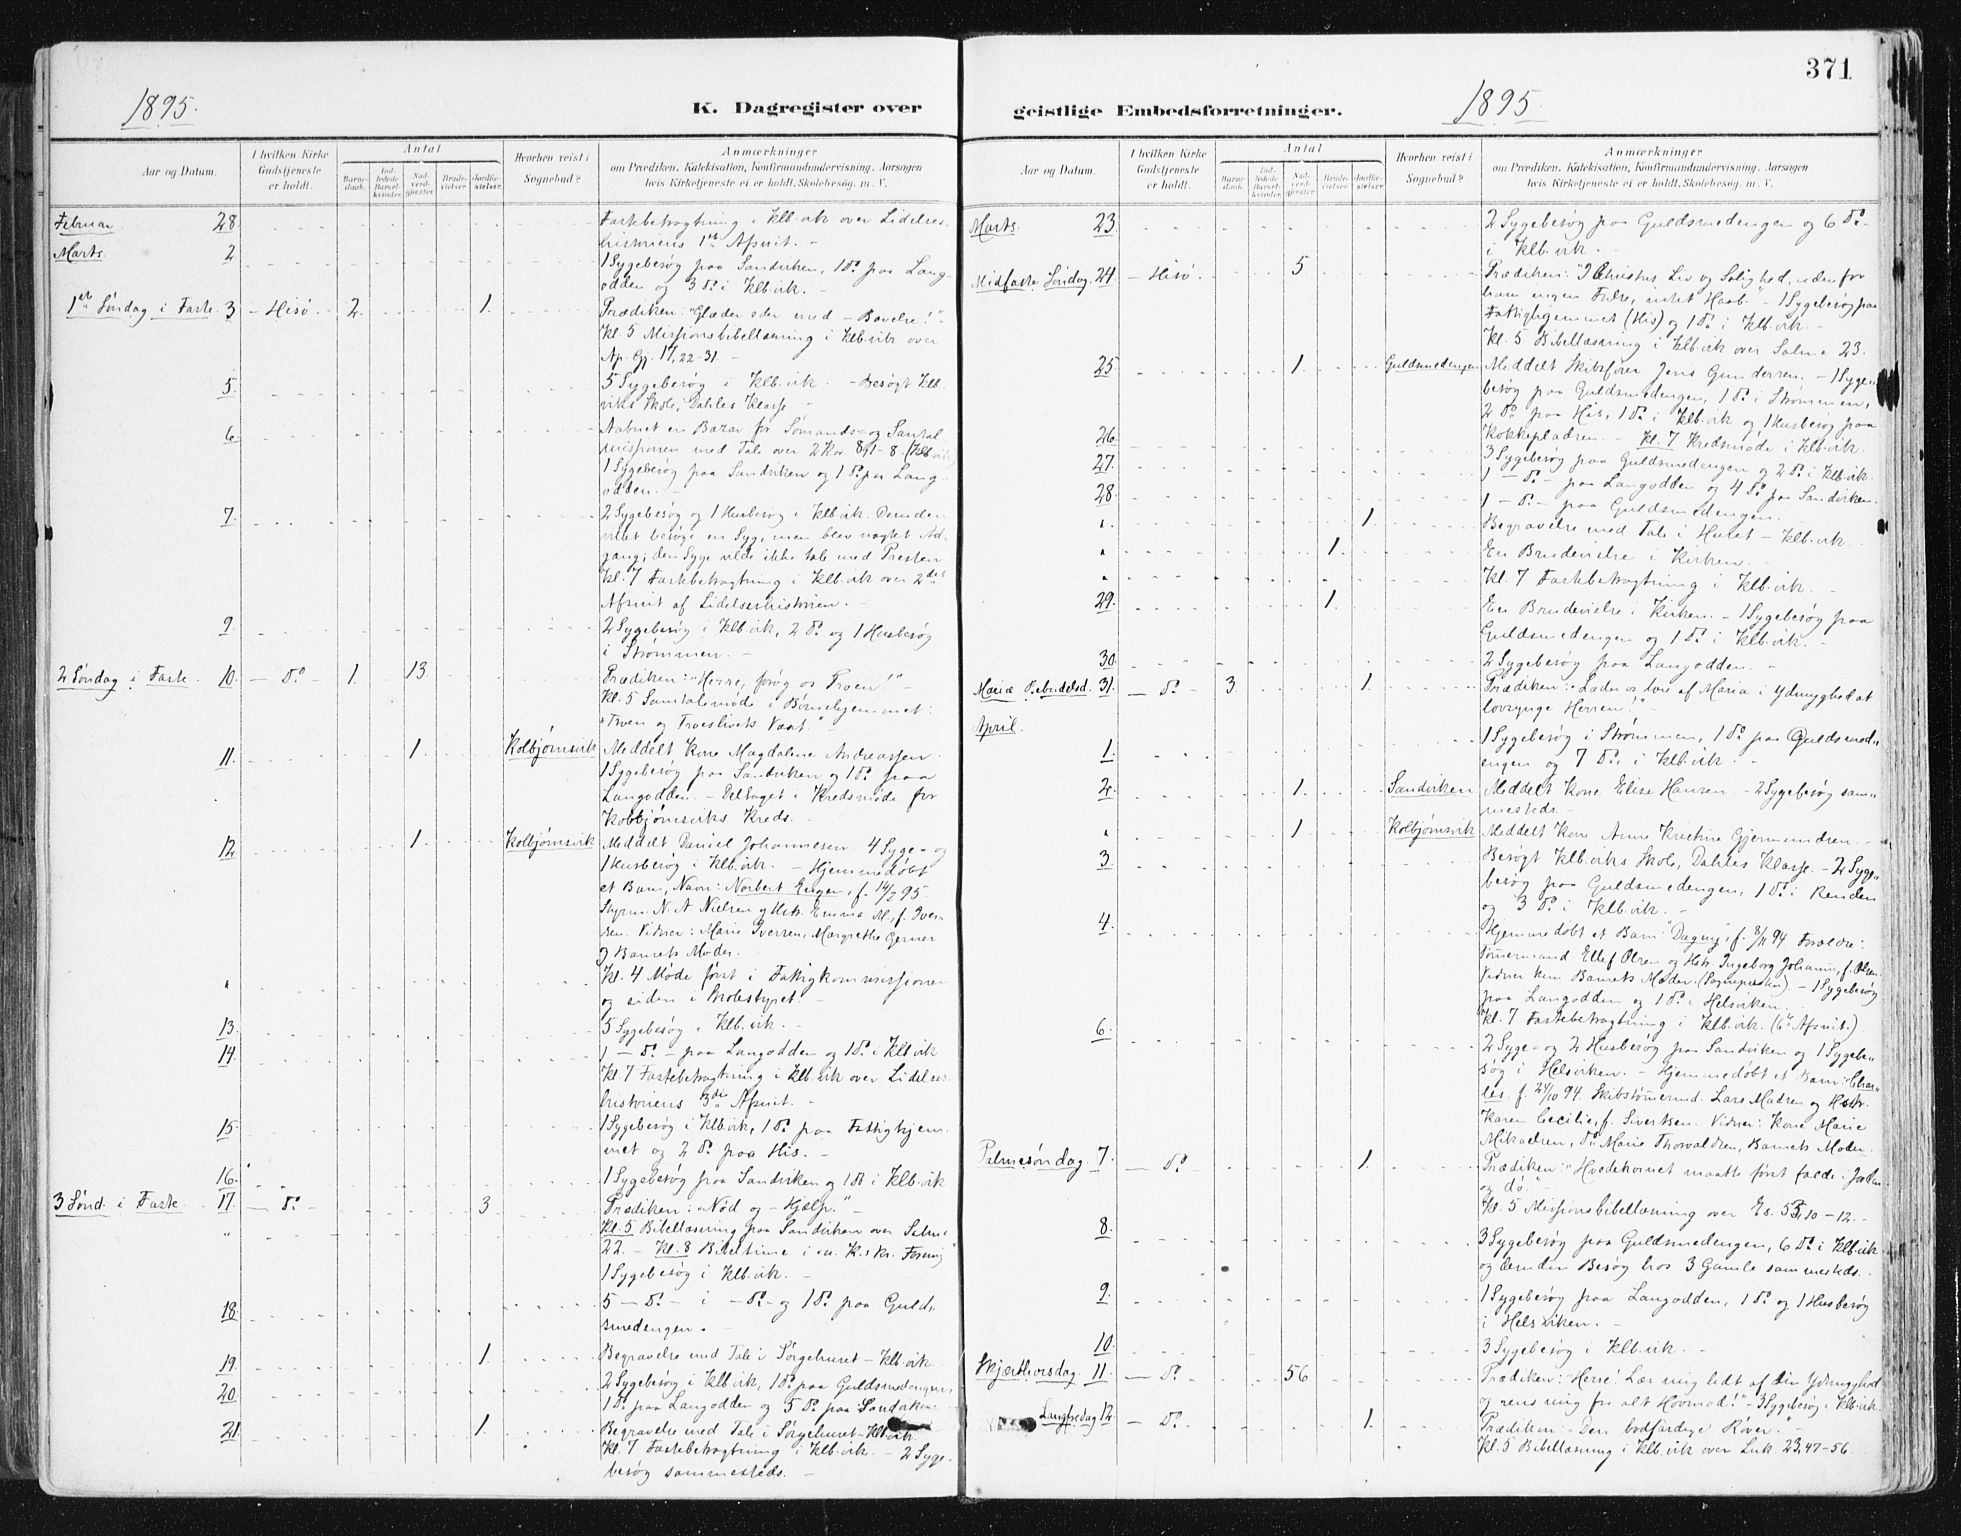 1895.
K. Dagregister over
Aar og Datum.
I hvilken Kirke Gudstjeneste er holdt.
Antal
Barne-daab.
Ind-ledede Barsel-kvinder.
Nad-verd-gjæster.
Brude-vielser.
Jordfæ-stelser.
Hvorhen reist i Sognebud?
Anmærkninger
om Prædiken, Katekisation, Konfirmandundervisning, Aarsagen
hvis Kirketjeneste ei er holdt, Skolebesøg, m. V.
Februar 28. Fastebetragtning i Klb.vik over Lidelses-
historiens 1ste Afsnit. -
Marts. 2 1 Sygebesøg paa Sandviken, 1 Do. paa Lang-
odden og 3 Do. i Klb.vik. -
1ste Søndag i Faste. 3 - Hisø - 2. 1. Prædiken: "Glæder eder med - Bævelse!" -
Kl. 5 Missionsbibellæsning i Klb.vik over
Ap. Gj. 17, 22-31. -
5. 5 Sygebesøg i Klb.vik. - Besøgt Klb.
viks Skole, Dahles Klasse -
6 Aabnet en Bazar for Sømands- og Santal-
missionen med Tale over 2 Kor 8, 1-8. (Klb.vik)
1 Sygebesøg paa Sandviken og 1 Do. paa Lang-
odden. -
7. 2 Sygebesøg og 1 Husbesøg i Klb.vik. Desuden
villet besøge en Syg, men blev nægtet Ad-
gang; den Syge vilde ikke tale med Presten.
Kl. 7 Fastebetragtning i Klb.vik over 2det
Afsnit af Lidelseshistorien. -
9. 2 Sygebesøg i Klb.vik, 2 Do. og 1 Husbesøg
i Strømmen. -
2 Søndag i Faste. 10. - Do. 1. 13 Prædiken: "Herre, forøg os Troen!" -
Kl. 5 Samtalemøde i Børnehjemmet:
"Troen og Troeslivets Væxt."
11. 1. Kolbjørnsvik Meddelt Kone Magdalene Andreassen.
1 Sygebesøg paa Sandviken og 1 Do. paa
Langodden. - Deltaget i Kredsmøde for
Kolbjørnsviks Kreds. -
12 1 Kolbjørnsvik Meddelt Daniel Johannesen. 4 Syge- og
1 Husbesøg i Klb.vik. - Hjemmedøbt
et Barn, Navn: Norbert Eugen, f. 14/2 95.
Styrm. N. A Nielsen og Hstr. Emma M., f. Iver-
sen. Vidner: Marie Iversen, Margrethe Gerner
og Barnets Moder.
" Kl. 4 Møde først i Fattigkommissionen
og siden i Skolestyret. -
13. 5 Sygebesøg i Klb.vik. -
14. 1 - Do. - paa Langodden og 1 Do. i Klb.vik
Kl. 7 Fastebetragtning i Klb.vik over Lidelses-
historiens 3die Afsnit. -
15 1 Sygebesøg i Klb.vik, 1 Do. paa Fattighjem-
met og 2 Do. paa His. -
16. 1 Sygebesøg paa Sandviken og 1 Do. i Klb.vik
3 Sønd. i Faste. 17. - Do. 3 Prædiken: "Nød og - Hjælp." -
" Kl. 5 Bibellæsning paa Sandviken over Salme
22. - Kl. 8 Bibeltime i u. K. s kr. Foren.
1 Sygebesøg i Klb.vik. -
18. 5 - Do. - i - Do. - og 1 Do. paa Guld-
smedengen. -
19. 1. Begravelse med Tale i Sørgehuset - Klb.vik.
20. 2 Sygebesøg i Klb.vik, 1 Do. paa Guldsmedengen,
1 Do. paa Langodden og 5 Do. paa Sandviken
21. 1. Begravelse med Tale i Sørgehuset - Klb.vik.
Kl. 7 Fastebetragtning i Klb.vik. - 2 Syge-
besøg sammesteds. -
371
geistlige Embedsforretninger.
1895.
Aar og Datum.
I hvilken Kirke Gudstjeneste er holdt.
Antal
Barne-daab.
Ind-ledede Barsel-kvinder.
Nad-verd-gjæster.
Brude-vielser.
Jordfæ-stelser.
Hvorhen reist i Sognebud?
Anmærkninger
om Prædiken, Katekisation, Konfirmandundervisning, Aarsagen
hvis Kirketjeneste ei er holdt, Skolebesøg, m. V.
Marts. 23. 2 Sygebesøg paa Guldsmedengen og 6 Do. -
i Klb.vik. -
Midfaste Søndag. 24 - Hisø. 5 Prædiken: "I Christus Liv og Salighed, udenfor
ham ingen Frelse, intet Haab." - 1 Sygebesøg paa
Fattighjemmet (His) og 1 Do. i Klb.vik. -
Kl. 5 Bibellæsning i Klb.vik over Salme 23.
25. 1. Guldsmedengen Meddelt Skibsfører Jens Gundersen. - 1 Syge-
besøg paa Guldsmedengen, 1 Do. i Strømmen,
2 Do. paa His, 1 Do. i Klb.vik og 1 Husbesøg paa
Kokkepladsen. - Kl. 7 Kredsmøde i Klb.vik.
26. 3 Sygebesøg paa Guldsmedengen og 2 Do. i Klb.vik
27. 1 - Do. - paa Langodden og 4 Do. paa Sandviken.
28. 1 - Do. - paa Guldsmedengen.
" 1 Begravelse med Tale i Huset - Klb.vik. -
" 1. En Brudevielse i Kirken. -
" Kl. 7 Fastebetragtning i Klb.vik. -
29. 1. En Brudevielse i Kirken. - 1 Sygebesøg paa
Guldsmedengen og 1 Do. i Klb.vik. -
30. 2 Sygebesøg paa Langodden. -
Mariæ Bebudelsd. 31. - Do. 3. 1. Prædiken: "Lader os lære af Maria i Ydmyghed at
lovsynge Herren!" -
April.
1. 1 Sygebesøg i Strømmen, 1 Do. paa Guldsmed-
engen og 7 Do. i Klb.vik. -
2. 1. Sandviken Meddelt Kone Elise Hansen - 2 Sygebesøg sam-
mesteds. -
" 1 Kolbjørnsvik Meddelt Kone Anne Kristine Gjermundsen. -
3. Besøgt Klb.viks Skole, Dahles Klasse. - 2 Syge-
besøg paa Guldsmedengen, 1 Do. i Renden
og 3 Do. i Klb.vik. -
4. Hjemmedøbt et Barn: "Dagny", f. 8/11 94. Forældre:
Tømmermand Ellef Olsen og Hstr. Ingeborg Johanne, f. Olsen.
Vidner kun Barnets Moder. (Sognepresten) - 1 Sygebesøg
paa Langodden og 1 Do. i Helsviken.
Kl. 7 Fastebetragtning i Klb.vik. (6te Afsnit.)
6. 2 Syge- og 2 Husbesøg paa Sandviken og 1 Sygebe-
søg i Helsviken. - Hjemmedøbt et Barn: "Char-
les", f. 24/10 94. Skibstømmermd. Lars Madsen og Hstr.
Karen Cecilie, f. Sivertsen. Vidner: Kone Marie
Mikaelsen, Do. Marie Thorvaldsen, Barnets Moder.
Palmesøndag. 7. - Do. 1. Prædiken: "Hvedekornet maatte først falde i Jorden
og dø." -
Kl. 5 Missionsbibellæsning over Es. 53, 10-12. -
8. 3 Sygebesøg paa Guldsmedengen, 6 Do. i Klb.vik
og desuden Besøg hos 3 Gamle sammesteds.
9. 1 Sygebesøg paa Langodden, 1 Do. og 1 Husbesøg
i Helsviken. -
10. 3 Sygebesøg i Klb.vik. -
Skjærthorsdag. 11. - Do. 56 Prædiken: "Herre! Lær mig lidt af din Ydmyghed
og rens mig fra alt Hovmod!" - 3 Sygebesøg i Klb.vik.
Langfredag 12 - Do. 1. Prædiken: "Den bodfærdige Røver." -
Kl. 5 Bibellæsning i Klb.vik over Luk 23, 47-56.